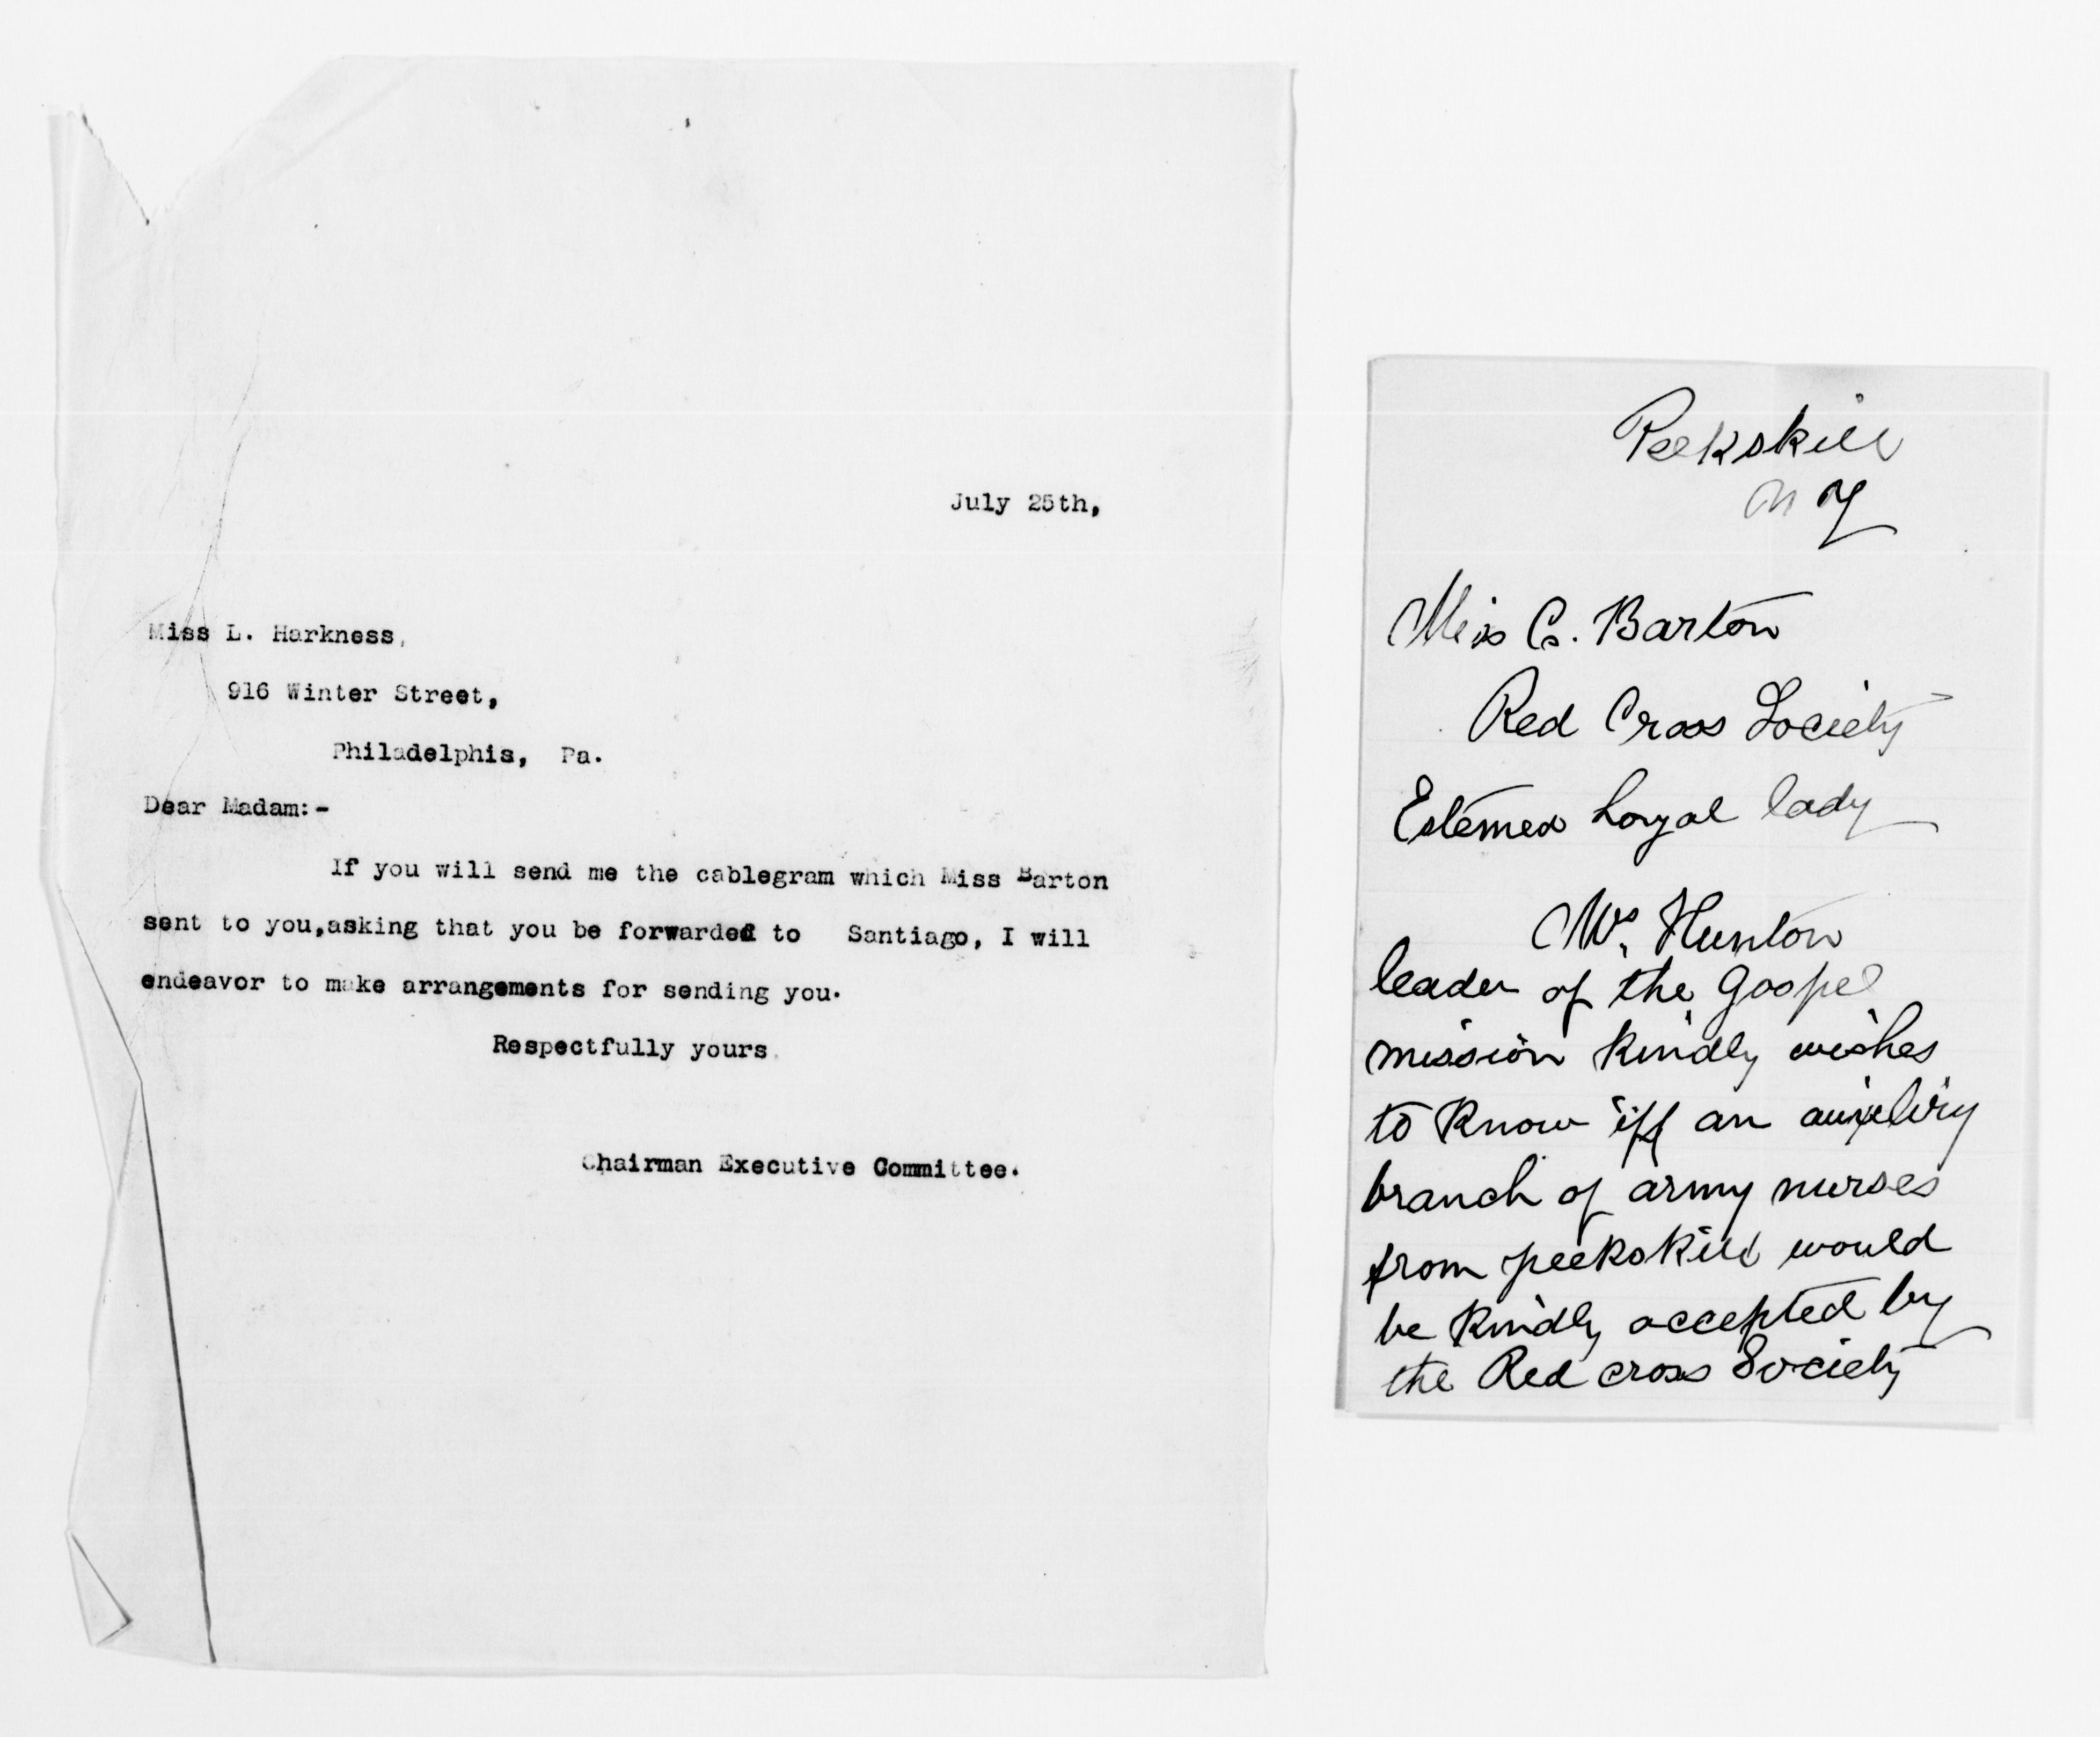 July 25th,
Miss L. Harkness,
916 Winter Street,
Philadelphis, Pa.
Dear Madam:-
If you will send me the cablegram which Miss Barton
sent to you,asking that you be forwarded to Santiago, I will
endeavor to make arrangements for sending you.
Respectfully yours,
Chairman Executive Committee.
Peekskill
N Y
Miss C. Barton
Red Cross Society
Estemed Loyal lady
Mrs. Hunton
leader of the Gospel
mission kindly wishes
to know iff an auxeliry
branch of army nurses
from peekskill would
be kindly accepted by
the Red cross Society